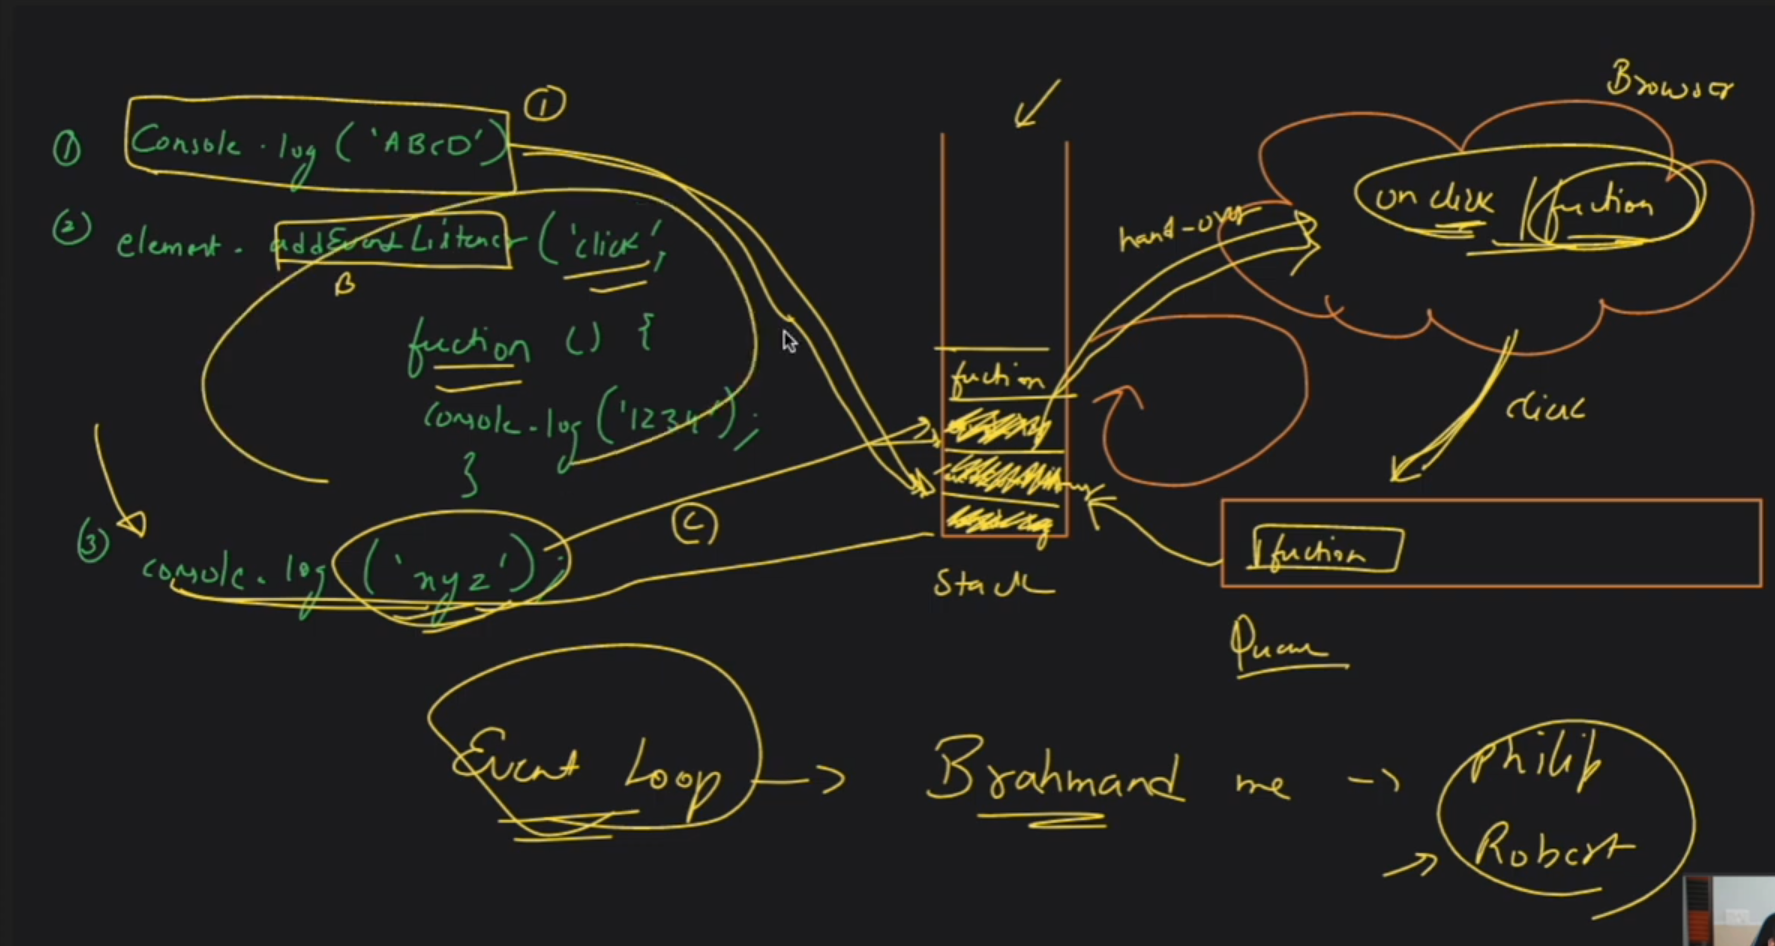 ①
① Console.log('ABCD')
② element.addEventListener('click',
B
fuction () {
console.log('1234');
}
③ console.log('xyz');
C
fuction
Stack
hand-over
Browser
on click | fuction
click
fuction
Queue
Event Loop → Brahmand me → Philip
→ Robert